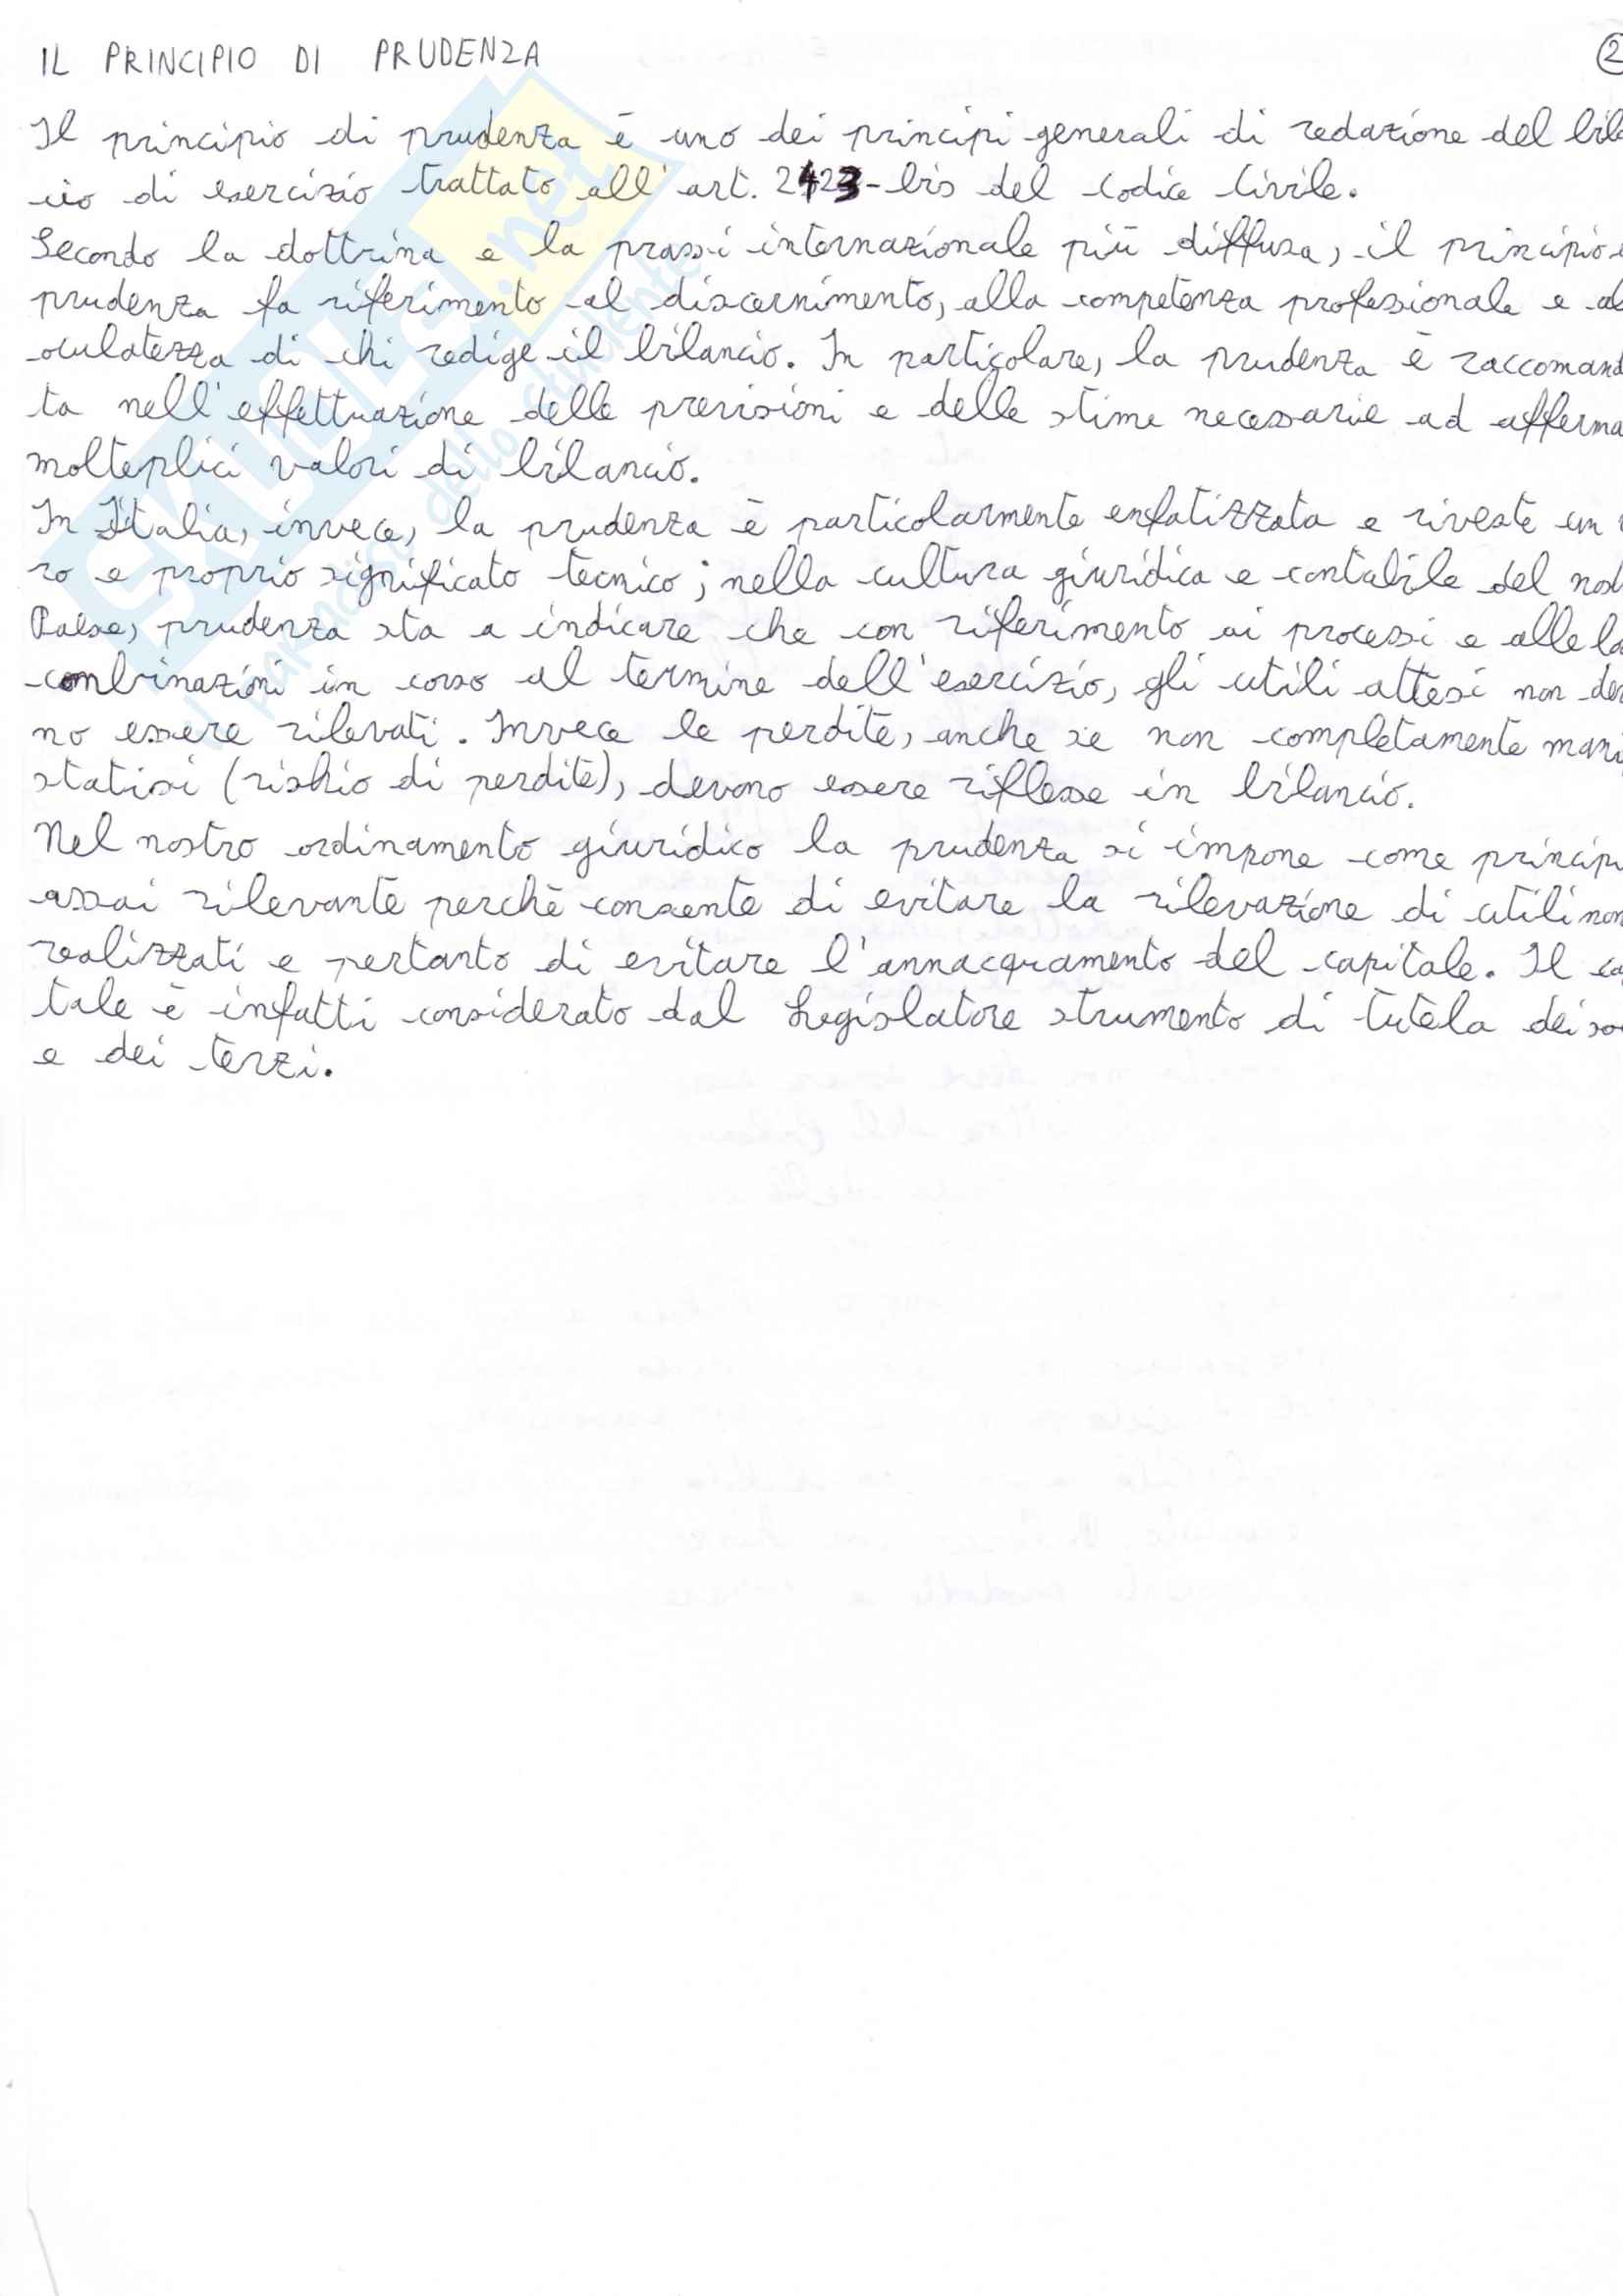 IL PRINCIPIO DI PRUDENZA 2
Il principio di prudenza è uno dei principi generali di redazione del bila
cio di esercizio trattato all'art. 2423-bis del Codice Civile.
Secondo la dottrina e la prassi internazionale più diffusa, il principio
prudenza fa riferimento al discernimento, alla competenza professionale e al
oculatezza di chi redige il bilancio. In particolare, la prudenza è raccomand
ta nell'effettuazione delle previsioni e delle stime necessarie ad afferma
molteplici valori di bilancio.
In Italia, invece, la prudenza è particolarmente enfatizzata e riveste un
ro e proprio significato tecnico; nella cultura giuridica e contabile del nost
Paese, prudenza sta a indicare che con riferimento ai processi e alle lo
combinazioni in corso al termine dell'esercizio, gli utili attesi non dev
no essere rilevati. Invece le perdite, anche se non completamente mani
statisi (rischio di perdite), devono essere riflesse in bilancio.
Nel nostro ordinamento giuridico la prudenza si impone come principi
assai rilevante perchè consente di evitare la rilevazione di utili non
realizzati e pertanto di evitare l'annacquamento del capitale. Il ca
tale è infatti considerato dal Legislatore strumento di tutela dei so
e dei terzi.
SKUOLA.net
il paradiso dello studente